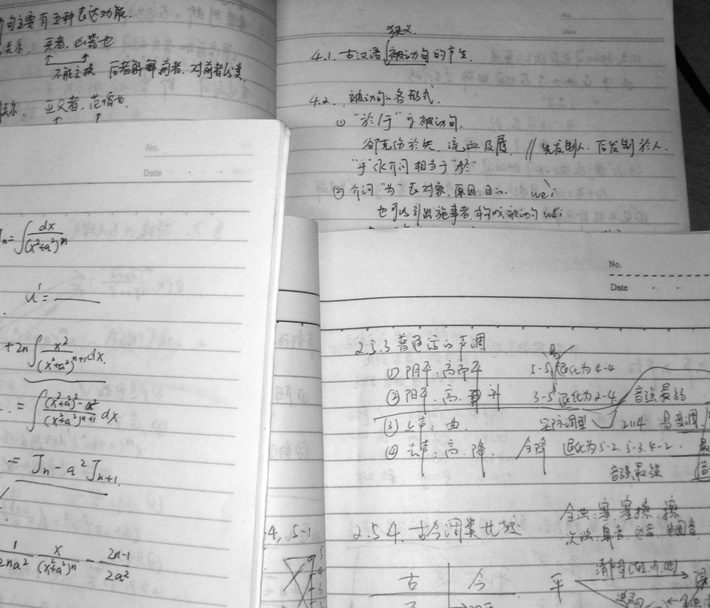 句主要有五种表达功能.
不能互换 后者解释前者, 对前者分类
狭义
4.1. 古汉语被动句的产生
4.2. 被动句的各形式
① "於/于" 字被动句.
郤克伤於矢, 流血及屦. // 先发制人, 后发制於人.
"于" 作介词 相当于 "於"
② 介词 "为" 表对象, 原因, 目的. wèi
也可以引出施事者, 构成被动句 wéi
No.
Date
Jn=∫dx/(x²+a²)ⁿ
u'=
+2n∫x²/(x²+a²)ⁿ⁺¹dx.
=∫(x²+a²)-a²/(x²+a²)ⁿ⁺¹ dx
= Jn-a²Jn+1
1/2na² x/(x²+a²)ⁿ - 2n-1/2a²
4, 5-1
No.
Date
2.5.3 普通话的声调
① 阴平: 高而平 5-5 退化为 4-4
② 阳平: 高. 升 3-5 退化为 2-4 音强最弱
③ 上声: 曲. 实际调型 2114 易变调
④ 去声: 高. 降. 全降 退化为 5-2. 5-3. 4-2.
音强最强
2.5.4. 古今调类比较
全浊: 塞 塞擦. 擦
次浊: 鼻音 边音
古 今 平